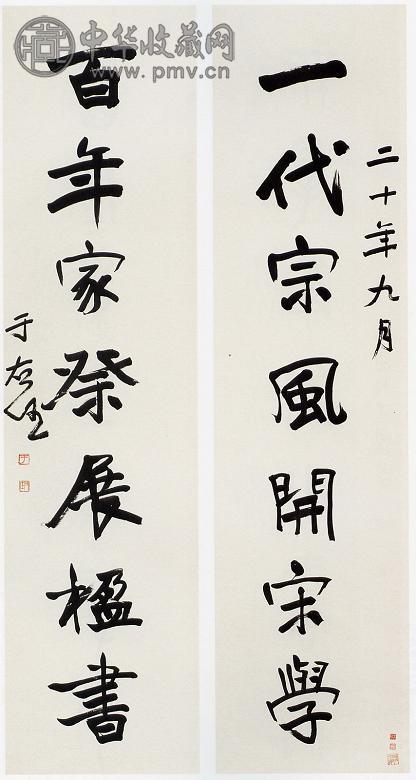 一代宗風開宋學
二十年九月
百年家祭展楹書
于右任
中华收藏网
www.pmv.cn